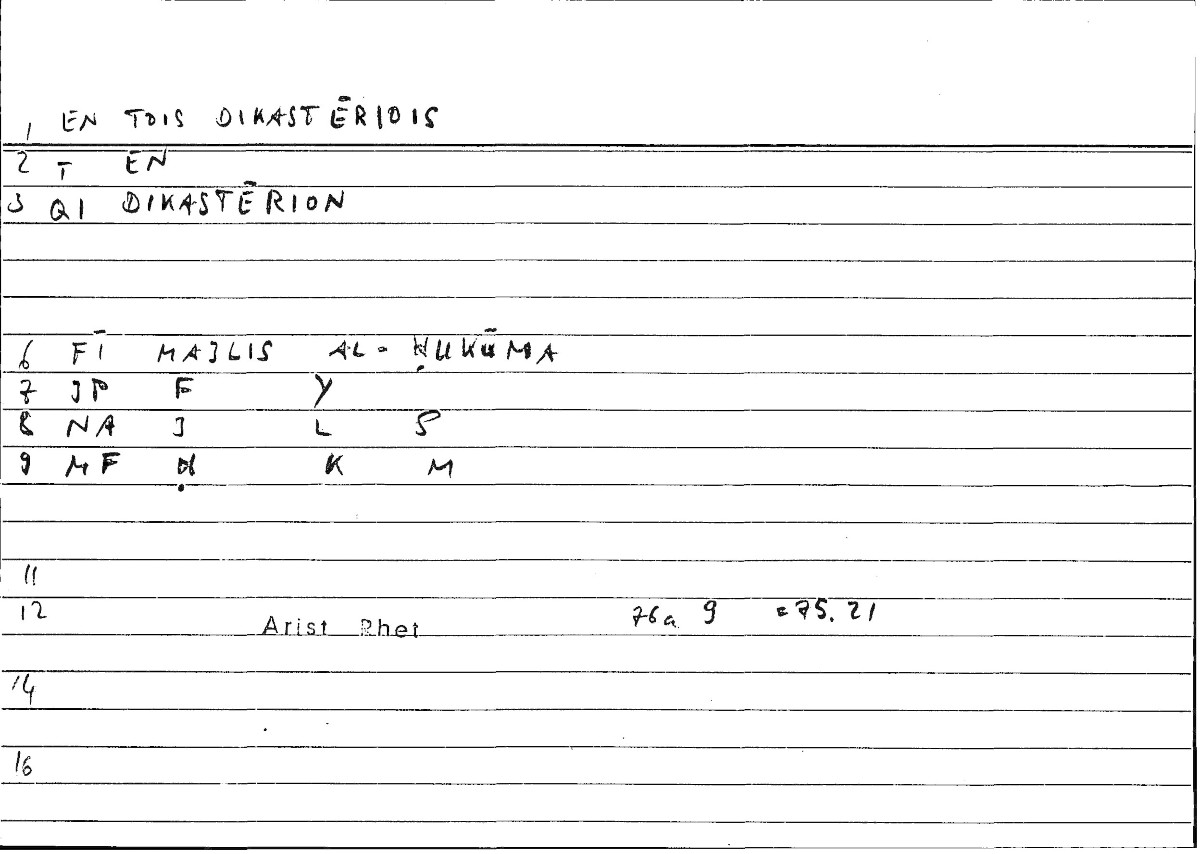 1 EN TOIS DIKASTĒRIOIS
2 T EN
3 QI DIKASTĒRION
6 FĪ MAJLIS AL-ḤUKŪMA
7 JP F Y
8 NA J L S
9 MF Ḥ K M
11
12 Arist Rhet 76a 9 =75.21
14
16